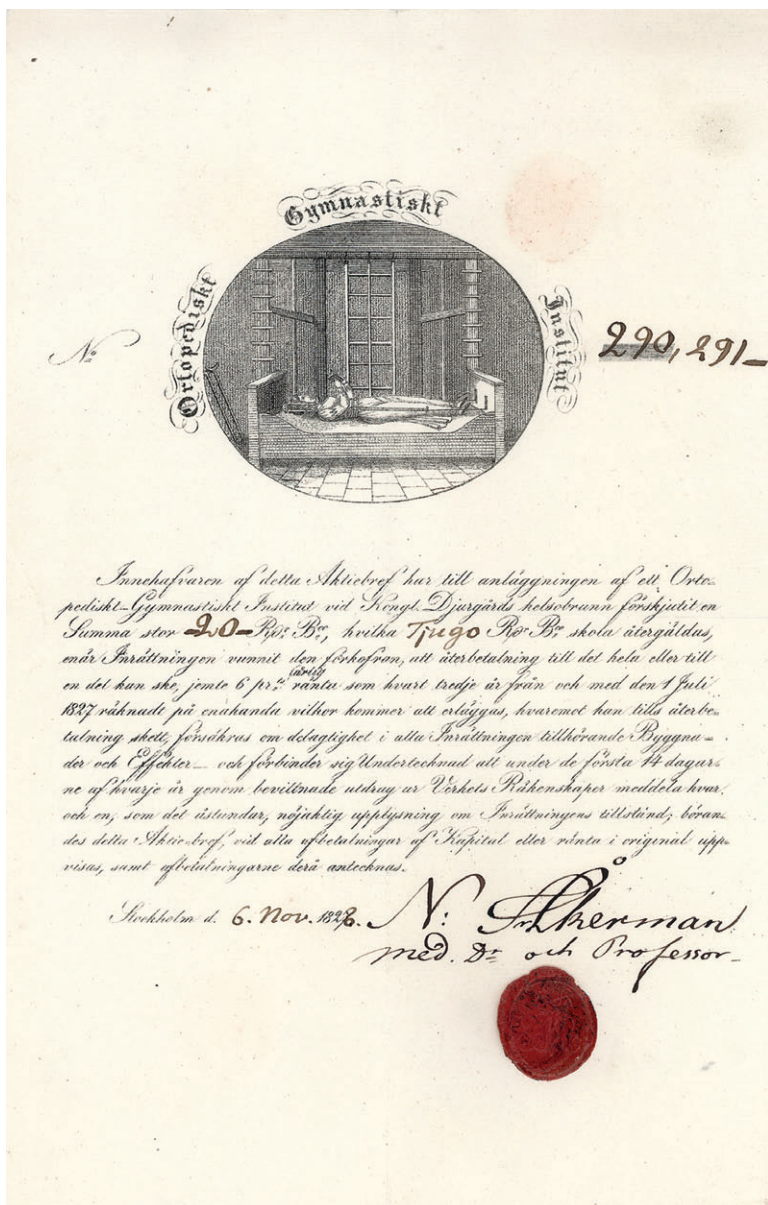 Ortopediskt Gymnastiskt Institut
No 290, 291_
Innehafvaren af detta Aktiebref har till anläggningen af ett Orto-
pediskt-Gymnastiskt Institut vid Kongl. Djurgårds helsobrunn förskjutit en
Summa stor 20_ Rdr Bco, hvilka Tjugo Rdr Bco skola återgäldas,
enär Inrättningen vunnit den förkofran, att återbetalning till det hela eller till
en del kan ske, jemte 6 pr. Ct årlig ränta som hvart tredje år från och med den 1 Juli
1827 räknadt på enahanda vilkor kommer att erläggas, hvaremot han tills återbe-
talning skett, försäkras om delagtighet i alla Inrättningen tillhörande Byggna-
der och Effekter_ och förbinder sig Undertecknad att under de första 14 dagar-
ne af hvarje år genom bevittnade utdrag ur Verkets Räkenskaper meddela hvar
och en, som det åstundar, nöjaktig upplysning om Inrättningens tillstånd; böran-
des detta Aktiebref, vid alla afbetalningar af Kapital eller ränta i original upp-
visas, samt afbetalningarne derå antecknas.
Stockholm d. 6. Nov. 1828. N: Åkerman
med. Dr och Professor_